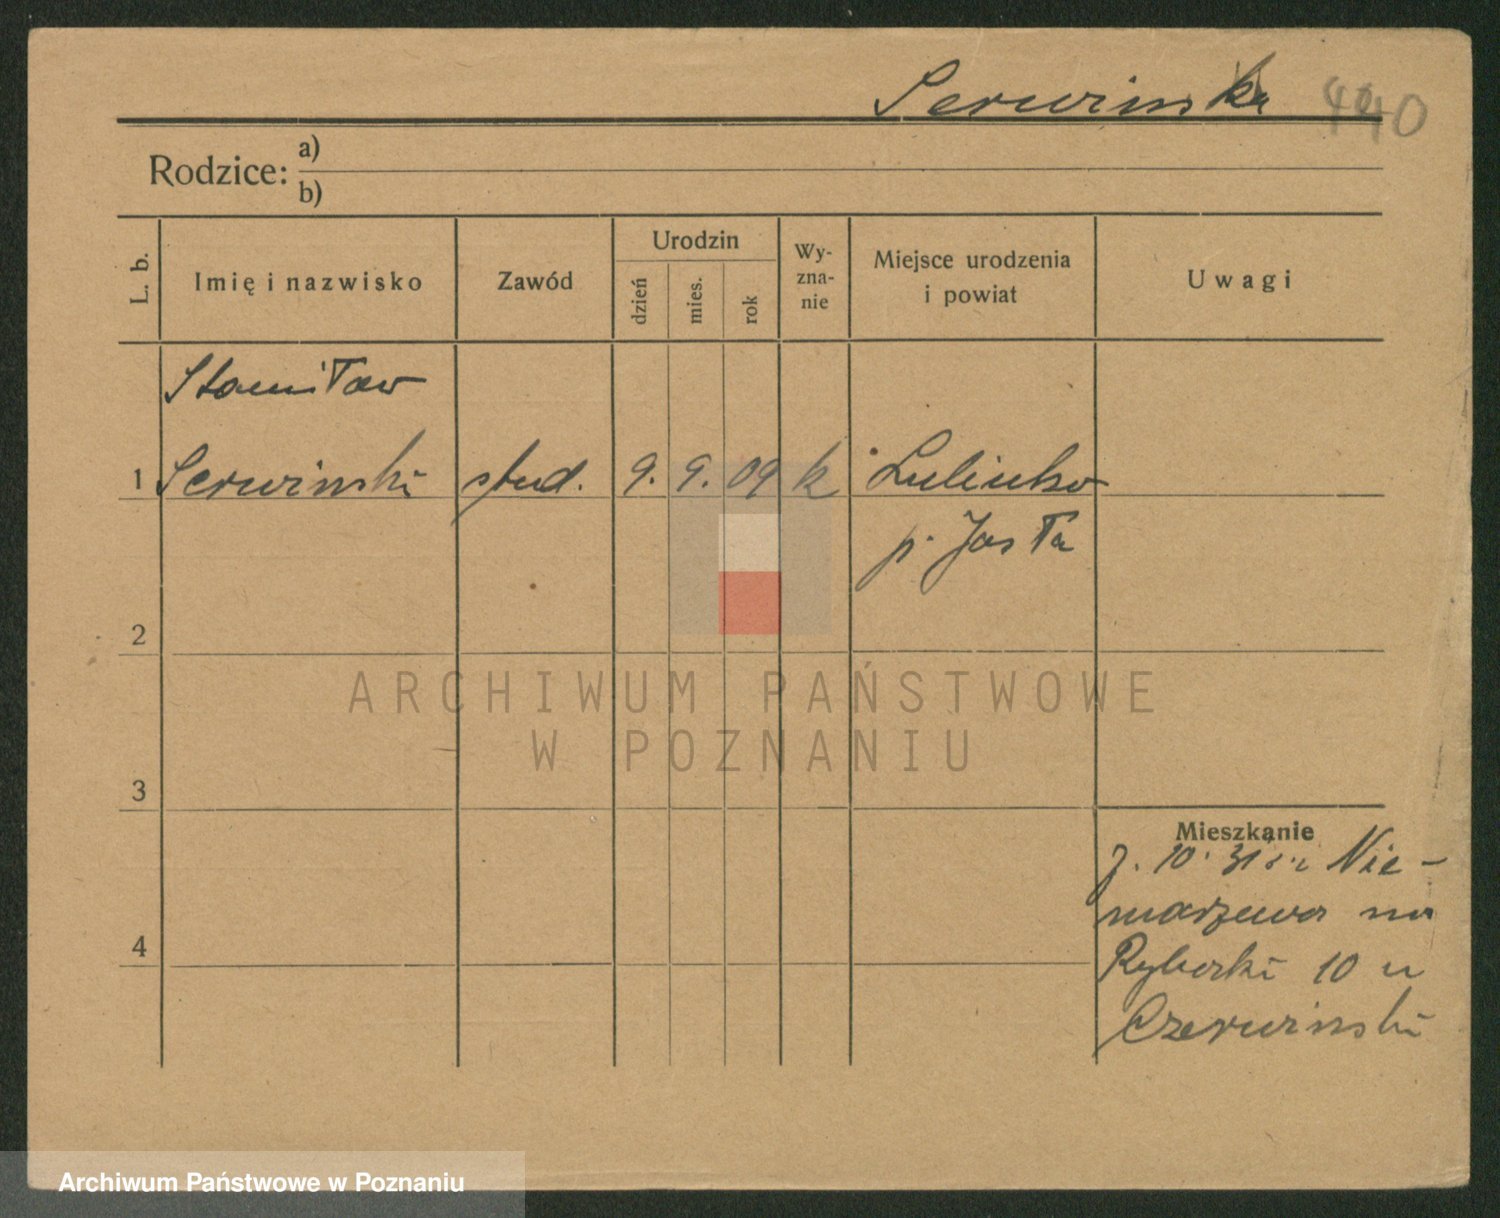 Serwinska 440
Rodzice: a)
b)
L. b.
Imię i nazwisko
Zawód
Urodzin
dzień
mies.
rok
Wy-
zna-
nie
Miejsce urodzenia
i powiat
Uwagi
Stanisław
1 Serwinski stud. 9. 9. 09 k Luliuko
p. Jasła
2
3
4
Mieszkanie
7. 10. 31 Nie-
marzewa na
Rybaki 10 u
Czerwinski
ARCHIWUM PAŃSTWOWE
W POZNANIU
Archiwum Państwowe w Poznaniu